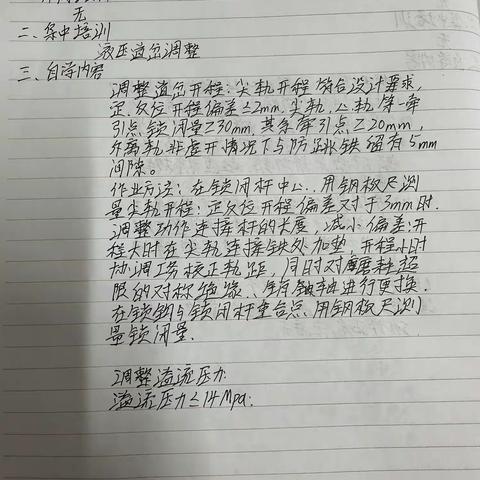 无
二、集中培训
液压道岔调整
三、自学内容
调整道岔开程：尖轨开程符合设计要求，
定、反位开程偏差≤2mm，尖轨、心轨第一牵
引点锁闭量≥30mm，其余牵引点≥20mm，
外离轨非密开情况下与防跳铁留有5mm
间隙。
作业方法：在锁闭杆中心、用钢板尺测
量尖轨开程；定反位开程偏差对于3mm时.
调整动作连接杆的长度，减小偏差；开
程大时在尖轨连接铁处加垫，开程小时
协调工务校正轨距，同时对磨耗超
限的对称绝缘、销轴进行更换.
在锁钩与锁闭杆重合点、用钢板尺测
量锁闭量.
调整溢流压力:
溢流压力≤14Mpa;